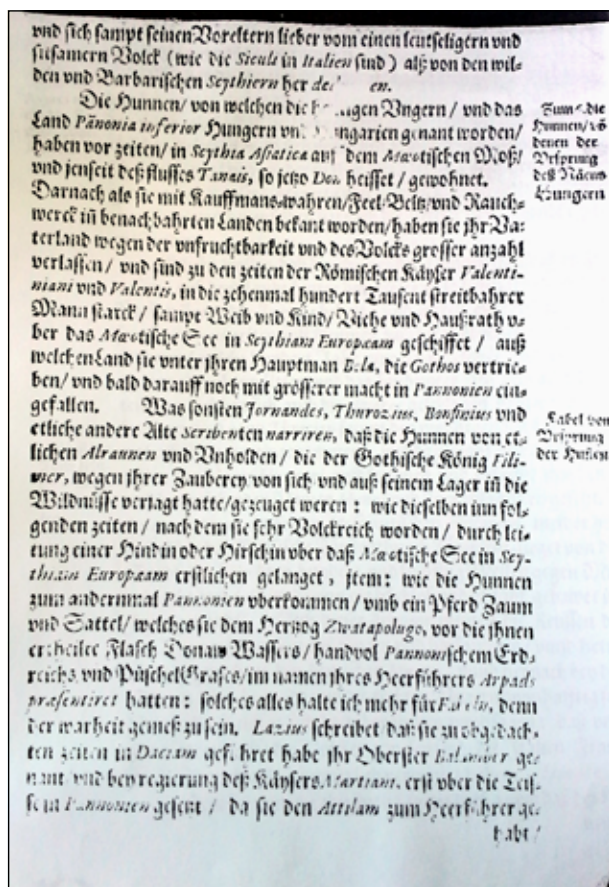 vnd sich sampt seinen Voreltern lieber vom einen leutseligern vnd
sitsamern Volck (wie die Siculi in Italien sind) alß von den wil-
den vnd Barbarischen Scythiern her
Die Hunnen/ von welchen die Vngern/ vnd das
Land Pãnonia inferior Hungern genant worden/
haben vor zeiten/ in Scythia Asiatica auf dem Mæotischen Moß/
vnd jenseit deß flusses Tanais, so jetzo Don heisset/ gewohnet.
Darnach als sie mit Kauffmans-wahren/Feel/Beltz/vnd Rauch-
werck iñ benachbahrten Landen bekant worden/haben sie jhr Va-
terland wegen der vnfruchtbarkeit vnd des Volcks grosser anzahl
verlassen/ vnd sind zu den zeiten der Römischen Käyser Valenti-
niani vnd Valentis, in die zehenmal hundert Tausent streitbahrer
Mann starck/ sampt Weib vnd Kind/ Viehe vnd Haußrath v-
ber das Mæotische See in Scythiam Europæam geschiffet/ auß
welchen Land sie vnter jhren Hauptman Bela, die Gothos vertrie-
ben/ vnd bald darauff noch mit grösserer macht in Pannonien ein-
gefallen. Was sonsten Jornandes, Thurozius, Bonfinius vnd
etliche andere Alte Scribenten narriren, daß die Hunnen von et-
lichen Alraunen vnd Vnholden/ die der Gothische König Fili-
mer, wegen jhrer Zauberey von sich vnd auß seinem Lager iñ die
Wildnüsse veriagt hatte/gezeuget weren: wie dieselben inn fol-
genden zeiten/ nach dem sie sehr Volckreich worden/ durch lei-
tung einer Hindin oder Hirschin vber daß Mæotische See in Scy-
thiam Europæam erstlichen gelanget, jtem: wie die Hunnen
zum andernmal Pannonien vberkommen/ vmb ein Pferd Zaum
vnd Sattel/ welches sie dem Hertzog Zwatapolugo, vor die jhnen
ertheilte Flasch Donaw Wassers/ handvol Pannonischem Erd-
reichs vnd Püschel Grases/im namen jhres Heerführers Arpads
præsentiret hatten: solches alles halte ich mehr für Fabeln, denn
der warheit gemeß zu sein. Lazius schreibet daß sie zu obgedach-
ten zeiten in Daciam habe jhr Oberster ge-
nant vnd bey regierung deß Käysers Martiani, erst vber die Teis-
se in Pannonien gesetzt/ da sie den Attilam zum Heerführer ge-
habt/
Hunnen/võ
denen der
Vrsprung
deß Nãens
Hungern
Fabel von
Vrsprung
der Huñen